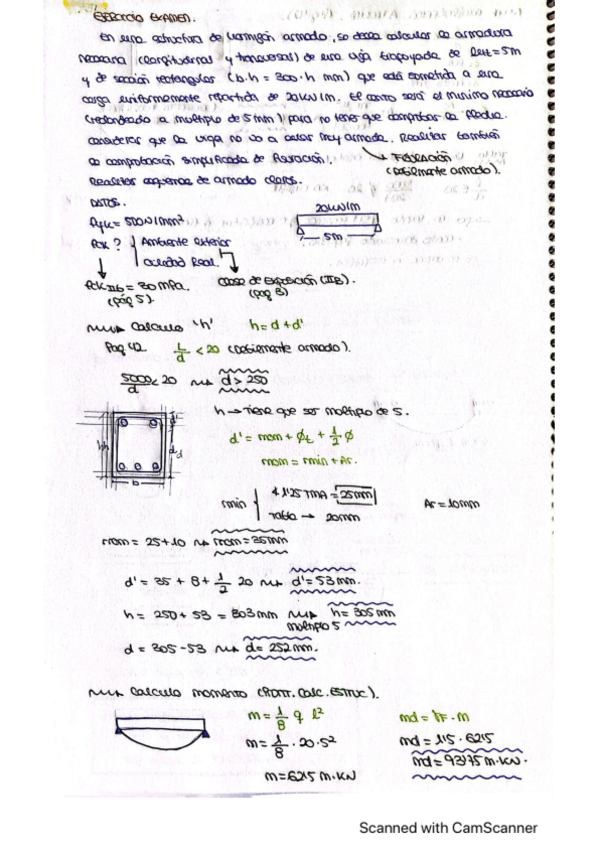 EJERCICIO EXAMEN.
En una estructura de hormigón armado, se desea calcular la armadura
necesaria (longitudinal y transversal) de una viga biapoyada de Lext = 5m
y de sección rectangular (b·h = 300·h mm) que está sometida a una
carga uniformemente repartida de 20kN/m. El canto será el mínimo necesario
(redondeado a multiplo de 5mm) para no tener que comprobar la flecha.
considerar que la viga no va a estar muy armada. Realizar también
la comprobación simplificada de fisuración.
→ FISURACIÓN
(debilmente armado).
Realizar esquemas de armado claros.
DATOS.
20kN/m
fyk = 500N/mm²
5m
fck ? Ambiente exterior
Calidad Real.
fck IIb = 30mPa.
(pág 5).
Clase de exposición (IIB).
(pag 8)
Calculo 'h' h = d + d'
Pag 42 L/d < 20 (debilmente armado).
5000/d < 20 d > 250
h → Tiene que ser multiplo de 5.
d' = rnom + Øt + 1/2 Ø
rnom = rmin + Δr.
h d' d
b
rmin 1'25 TMA = 25mm
Tabla → 20mm
Δr = 10mm
rnom = 25 + 10 rnom = 35mm
d' = 35 + 8 + 1/2 20 d' = 53mm.
h = 250 + 53 = 303mm h = 305mm
multiplo 5
d = 305 - 53 d = 252mm.
Calculo momento (PRONT. Calc. ESTRUC).
m = 1/8 q l²
md = γF · m
m = 1/8 · 20 · 5²
md = 1'5 · 62'5
md = 93'75 m·kN.
m = 62'5 m·kN
Scanned with CamScanner